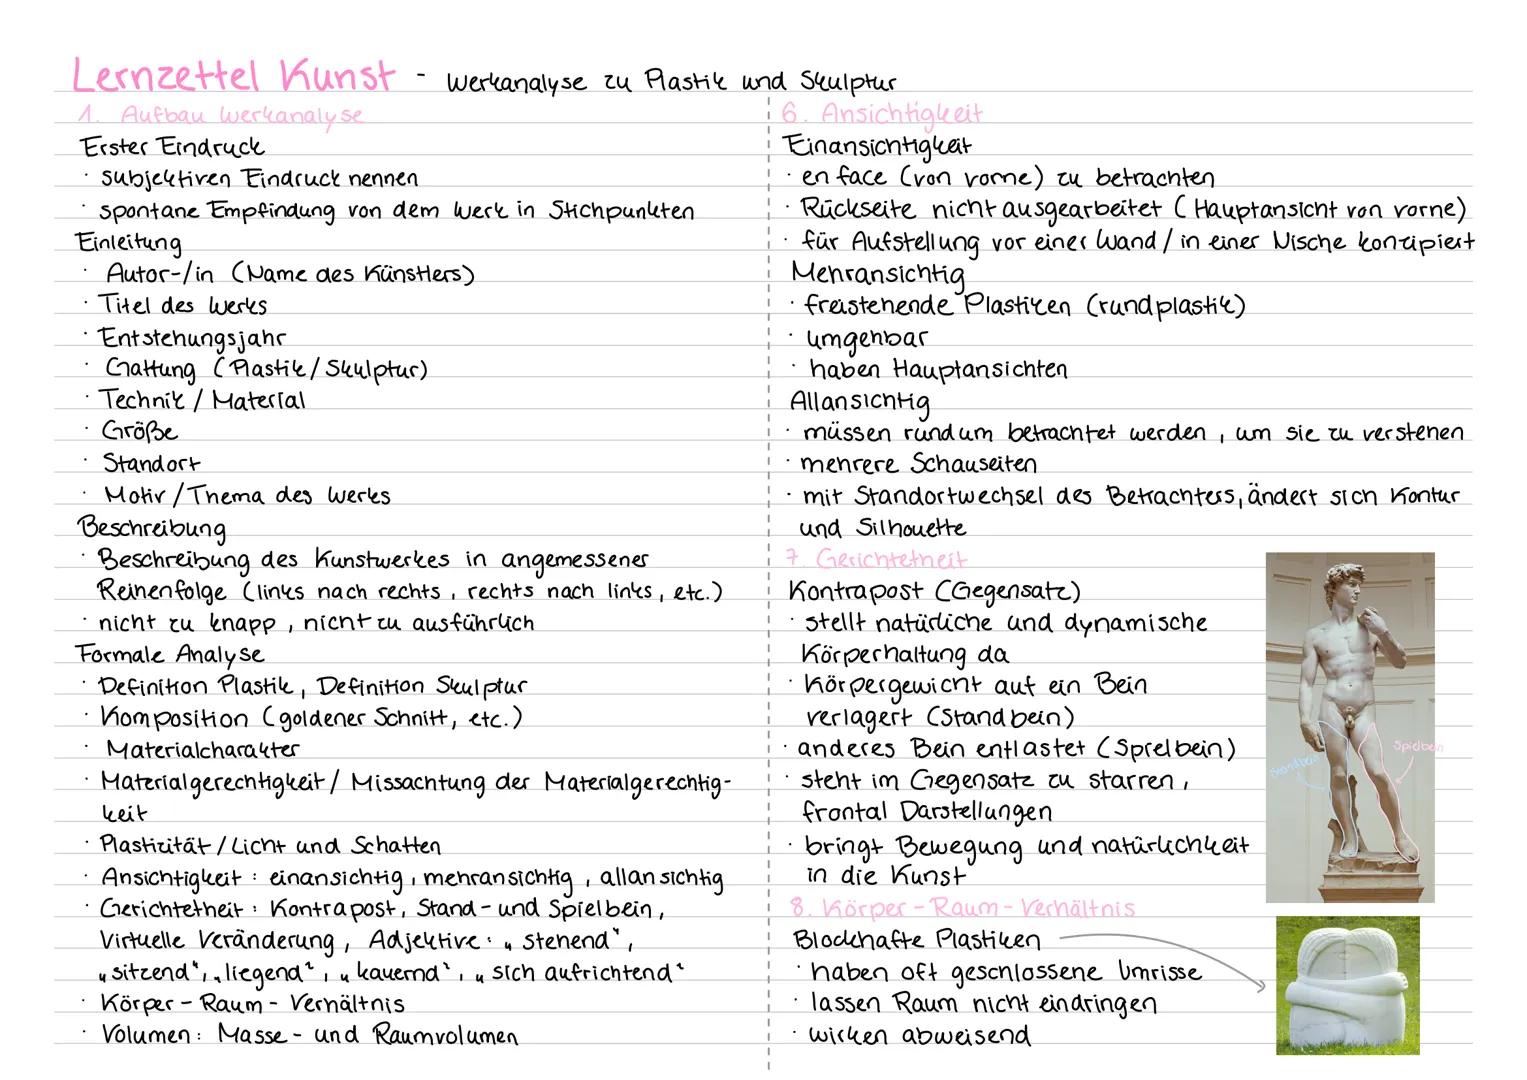 Lernzettel Kunst - Werkanalyse zu Plastik und Skulptur
1. Aufbau Werkanalyse
Erster Eindruck
· subjektiven Eindruck nennen
· spontane Empfindung von dem Werk in Stichpunkten
Einleitung
· Autor-/in (Name des Künstlers)
· Titel des Werks
· Entstehungsjahr
· Gattung (Plastik/Skulptur)
· Technik / Material
· Größe
· Standort
· Motiv /Thema des Werkes
Beschreibung
· Beschreibung des Kunstwerkes in angemessener
Reihenfolge (links nach rechts, rechts nach links, etc.)
· nicht zu knapp, nicht zu ausführlich
Formale Analyse
· Definition Plastik, Definition Skulptur
· Komposition (goldener Schnitt, etc.)
· Materialcharakter
· Materialgerechtigkeit/ Missachtung der Materialgerechtig-
keit
· Plastizität /Licht und Schatten
· Ansichtigkeit: einansichtig, mehransichtig, allansichtig
· Gerichtetheit: Kontrapost, Stand- und Spielbein,
Virtuelle Veränderung, Adjektive: „stehend",
„sitzend", „liegend", „kauernd", „sich aufrichtend"
· Körper-Raum-Verhältnis
· Volumen: Masse- und Raumvolumen
6. Ansichtigkeit
Einansichtigkeit
· en face (von vorne) zu betrachten
· Rückseite nicht ausgearbeitet (Hauptansicht von vorne)
· für Aufstellung vor einer Wand/ in einer Nische konzipiert
Mehransichtig
· freistehende Plastiken (rundplastik)
· umgehbar
· haben Hauptansichten
Allansichtig
· müssen rundum betrachtet werden, um sie zu verstehen
· mehrere Schauseiten
· mit Standortwechsel des Betrachters, ändert sich Kontur
und Silhouette
7. Gerichtetheit
Kontrapost (Gegensatz)
· stellt natürliche und dynamische
Körperhaltung da
· Körpergewicht auf ein Bein
verlagert (Standbein)
· anderes Bein entlastet (Spielbein)
· steht im Gegensatz zu starren,
frontal Darstellungen
· bringt Bewegung und natürlichkeit
in die Kunst
Standbein
Spielbein
8. Körper-Raum-Verhältnis
Blockhafte Plastiken
· haben oft geschlossene Umrisse
· lassen Raum nicht eindringen
· wirken abweisend